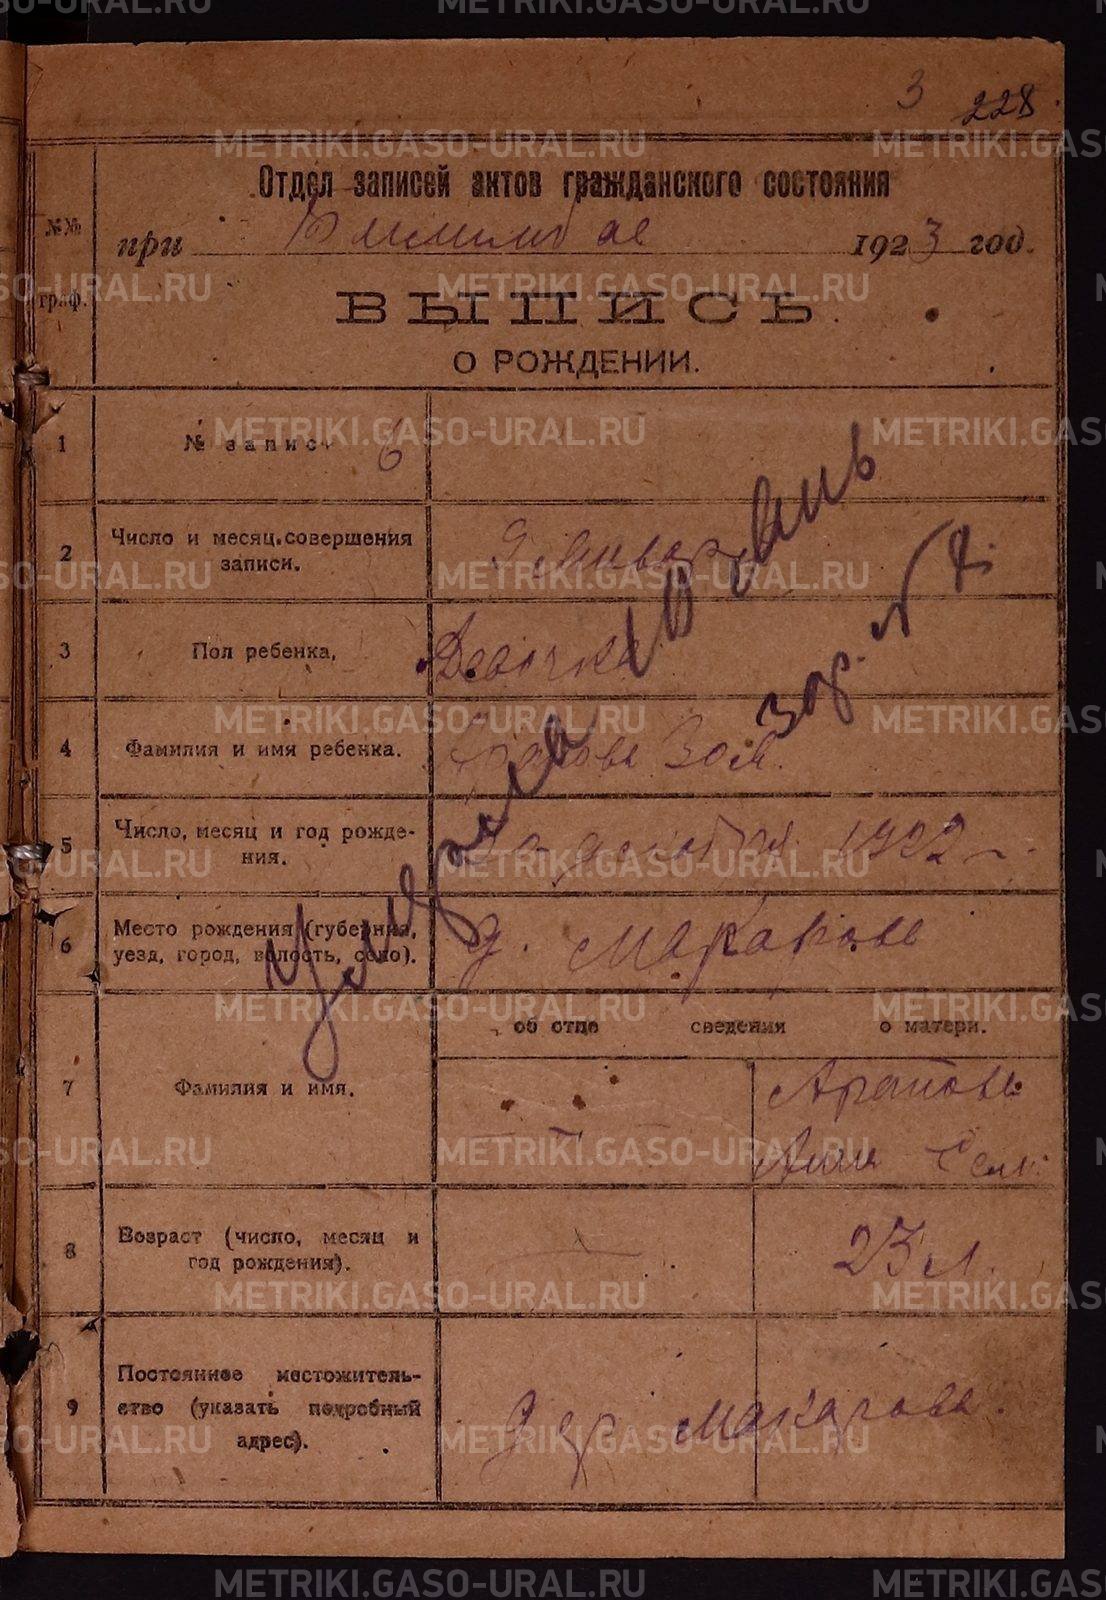 3 228
Отдел записей актов гражданского состояния
при 1923 год.
№№
граф.
ВЫПИСЬ
О РОЖДЕНИИ.
1 № запис 6
2 Число и месяц совершения
записи. 9 Января
3 Пол ребенка, Девочка
4 Фамилия и имя ребенка. Арапова Зоя.
5 Число, месяц и год рожде-
ния. декабря 1922 г.
6 Место рождения (губерния,
уезд, город, волость, село). д. Макарова
об отце сведения о матери.
7 Фамилия и имя. — Арапова
Анна
8 Возраст (число, месяц и
год рождения). — 23 л.
9 Постоянное местожитель-
ство (указать подробный
адрес). дер Макарова.
METRIKI.GASO-URAL.RU